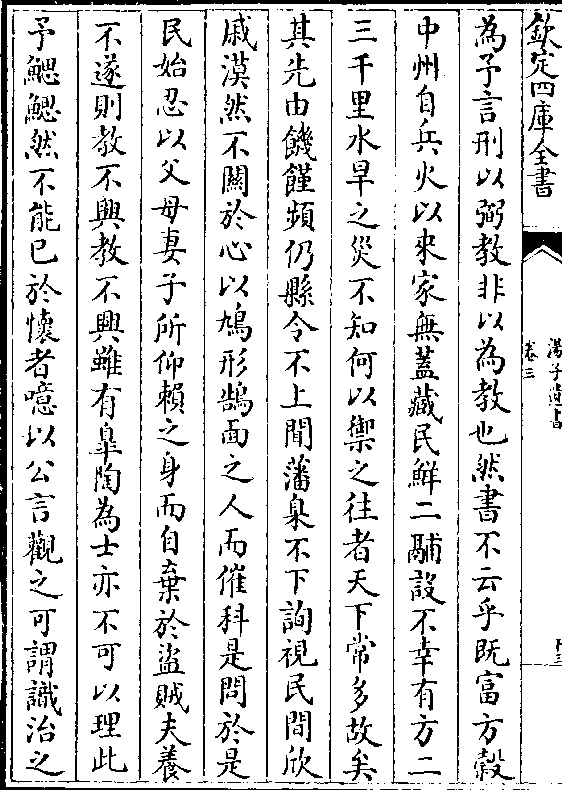 欽定四庫全書
湯子遺書
卷三
為予言刑以弼教非以為教也然書不云乎既富方穀
中州自兵火以來家無蓋藏民鮮二鬴設不幸有方二
三千里水旱之災不知何以禦之往者天下常多故矣
其先由饑饉頻仍縣令不上聞藩臬不下詢視民間欣
戚漠然不關於心以鳩形鵠面之人而催科是問於是
民始忍以父母妻子所仰賴之身而自棄於盜賊夫養
不遂則教不興教不興雖有臯陶為士亦不可以理此
予鰓鰓然不能已於懷者噫以公言觀之可謂識治之